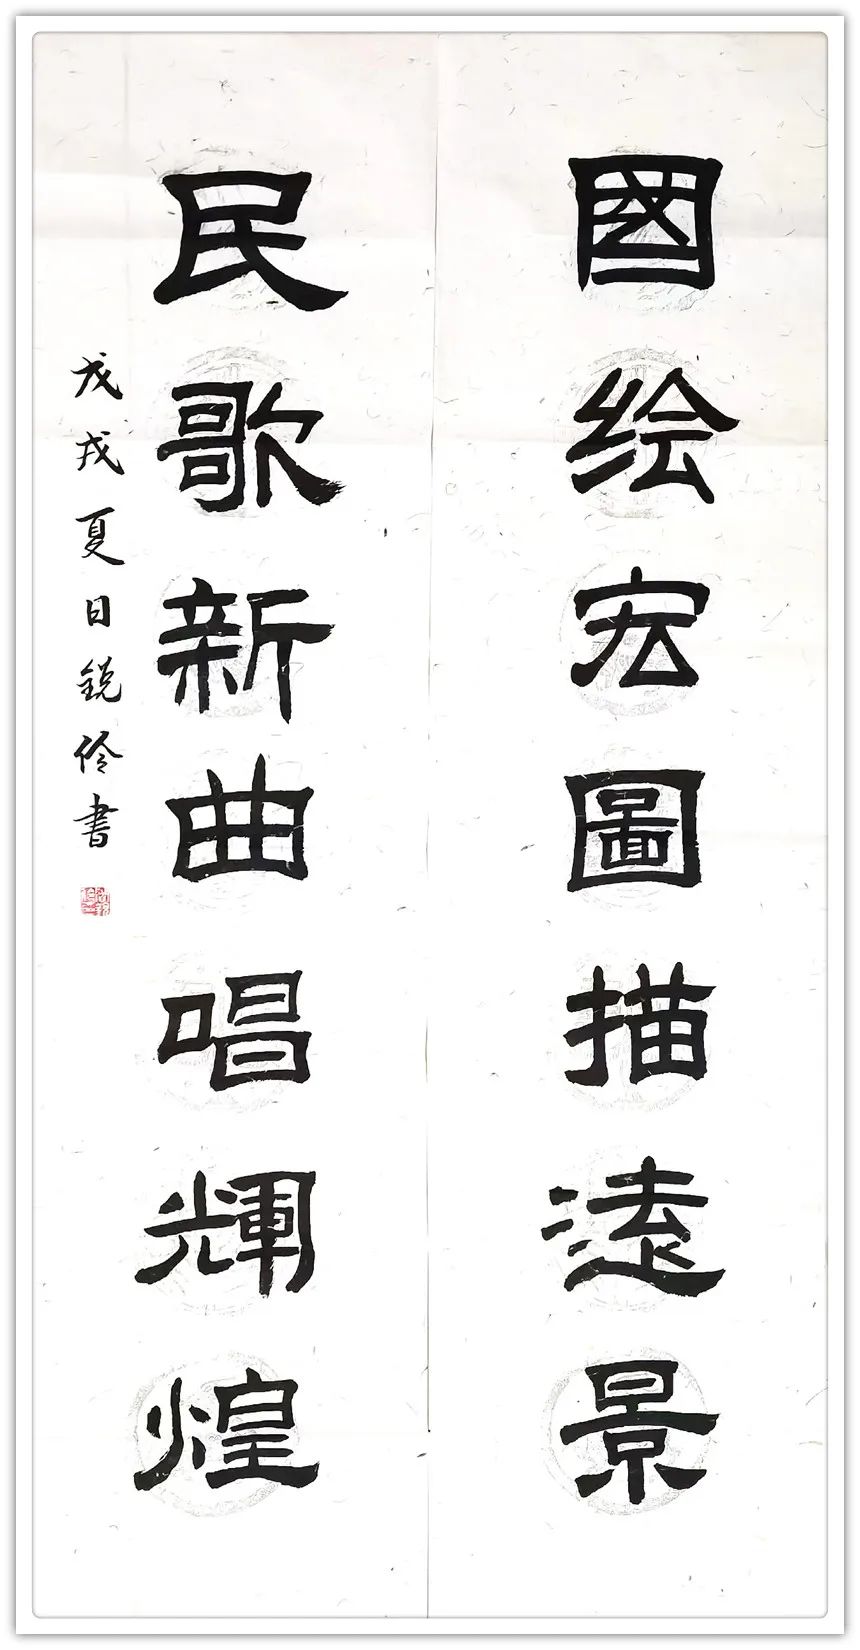 國绘宏圖描遠景
民歌新曲唱輝煌
戊戌夏日锐伶書